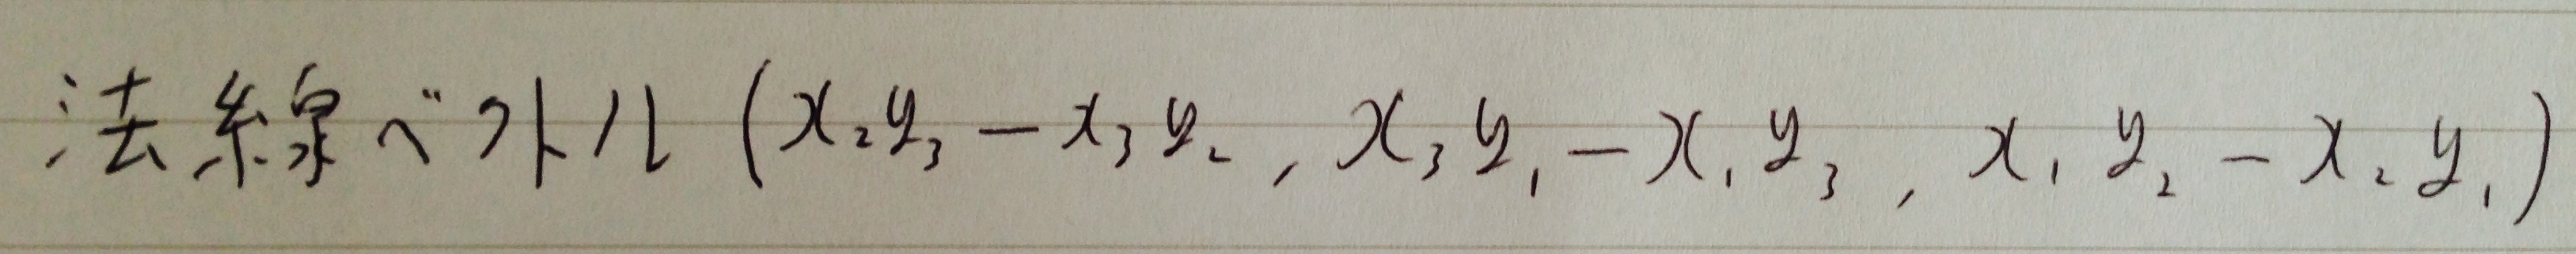 法線ベクトル (x₂y₃ − x₃y₂, x₃y₁ − x₁y₃, x₁y₂ − x₂y₁)